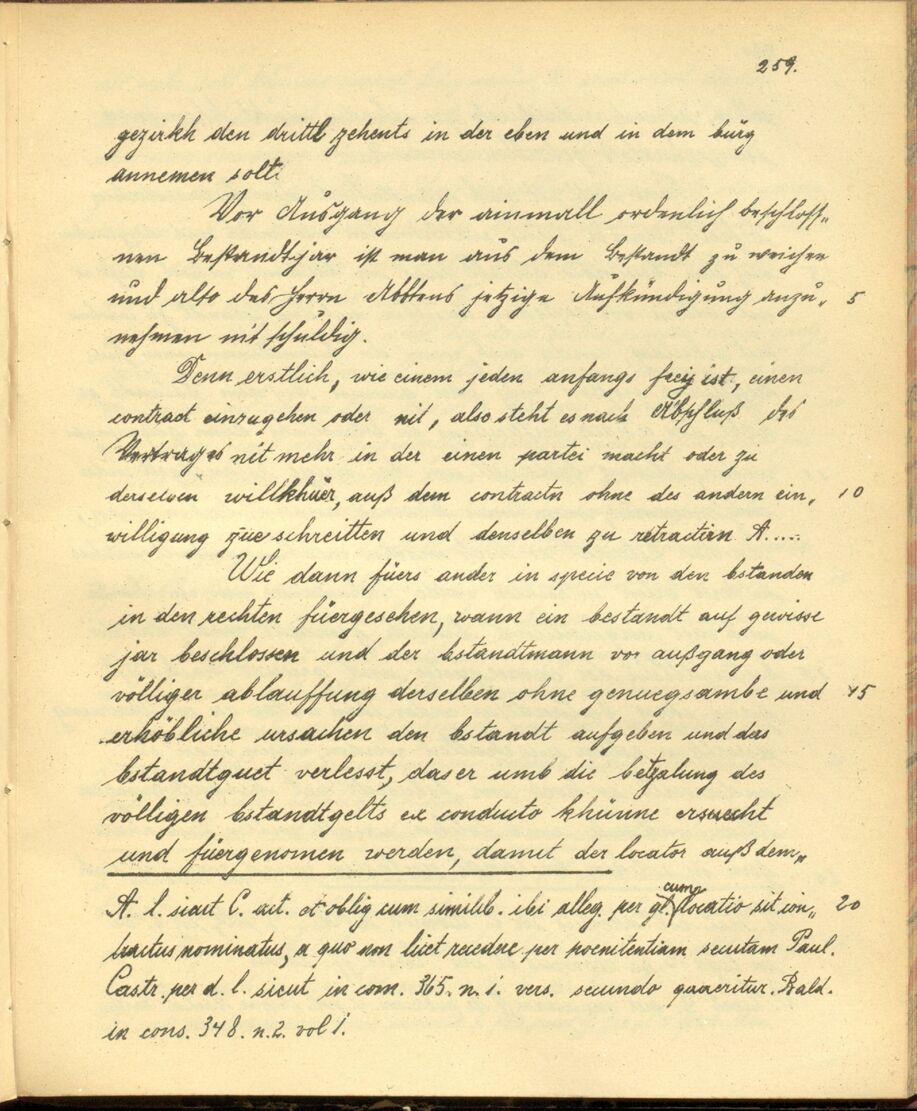 259.
gezirkh den drittl zehents in der eben und in dem bürg
annemen solt.
Vor Ausgang der ainmall ordenlich beschloss„
nen Bestandtjar ist man aus dem Bestandt zu weichen
und also des Herrn Abbtens jetzige Aufkündigung anzu„ 5
nehmen nit schuldig.
Denn erstlich, wie einem jeden anfangs freiy ist, einen
contract einzugehen oder nit, also steht es nach Abschluß des
Vertrages nit mehr in der einen partei macht oder zu
derselben willkhüer, auß dem contractn ohne des andern ein„ 10
willigung züe schreitten und denselben zu retractirn A.....
Wie dann füers ander in specie von den bstanden
in den rechten füergesehen, wann ein bestandt auf gewisse
jar beschlossen und der bstandtmann vor außgang oder
völliger ablauffung derselben ohne genuegsambe und 15
erhöbliche ursachen den bstandt aufgeben und das
bstandtguet verlesst, das er umb die betzalung des
völligen bstandtgelts ex conducto khünne ersuecht
und füergenomen werden, damit der locator auß dem„
A. l. sicut C. act. et oblig cum similib. ibi alleg. per gl. cum locatio sit con„ 20
tractus nominatus, a quo non licet recedere per poenitentiam secutam Paul.
Castr. per d. l. sicut in com. 365. n. 1. vers. secundo quaeritur. Bald.
in cons. 348. n. 2. vol 1.